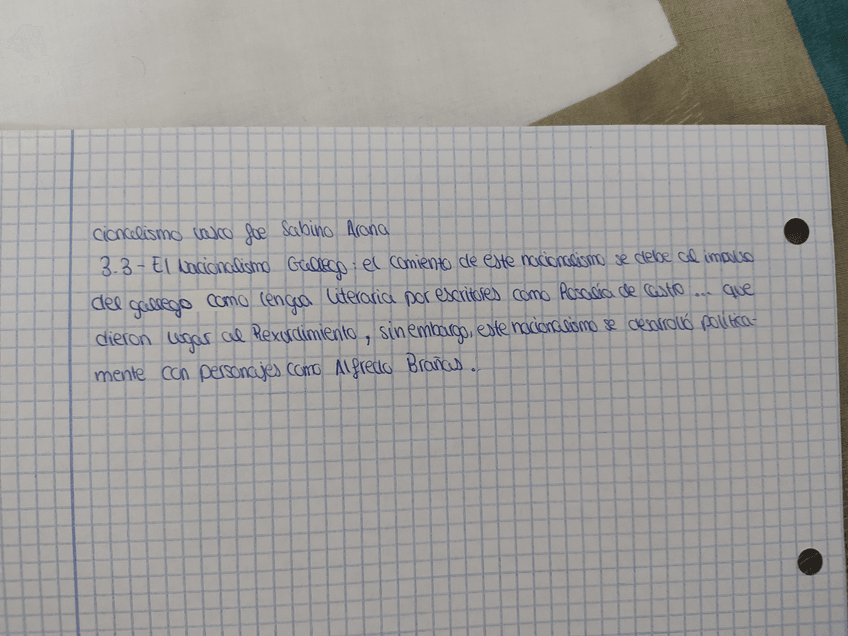 cionalismo vasco fue Sabino Arana
3.3- El Nacionalismo Gallego: el comiento de este nacionalismo se debe al impulso
del gallego como lengua literaria por escritores como Rosalía de Castro... que
dieron lugar al Rexurdimiento, sin embargo, este nacionalismo se desarrolló política-
mente con personajes como Alfredo Brañas.